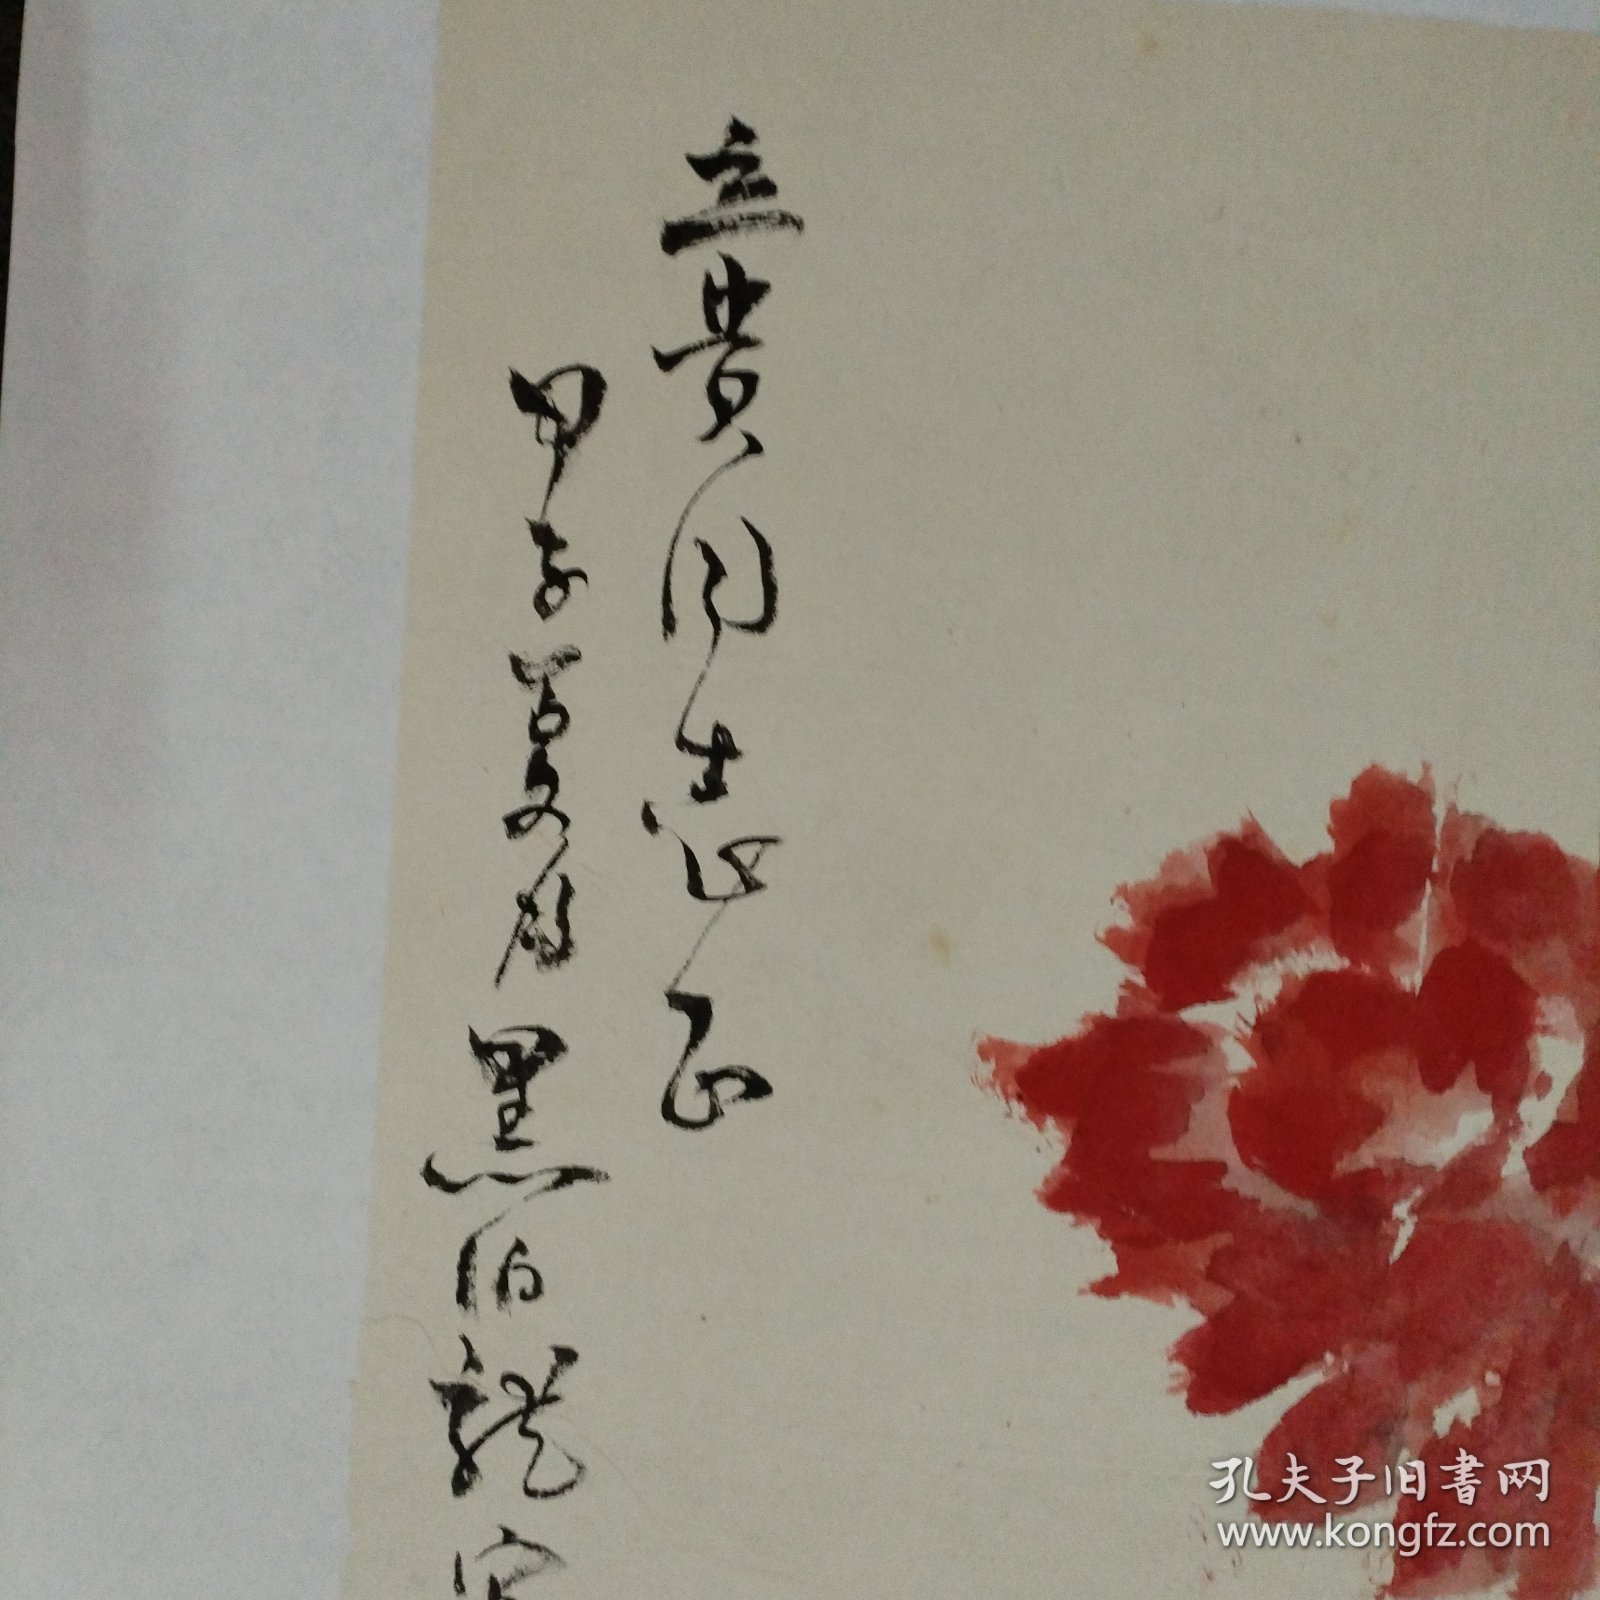 立贵同志正
甲子夏月黑伯龍写
孔夫子旧书网
www.kongfz.com